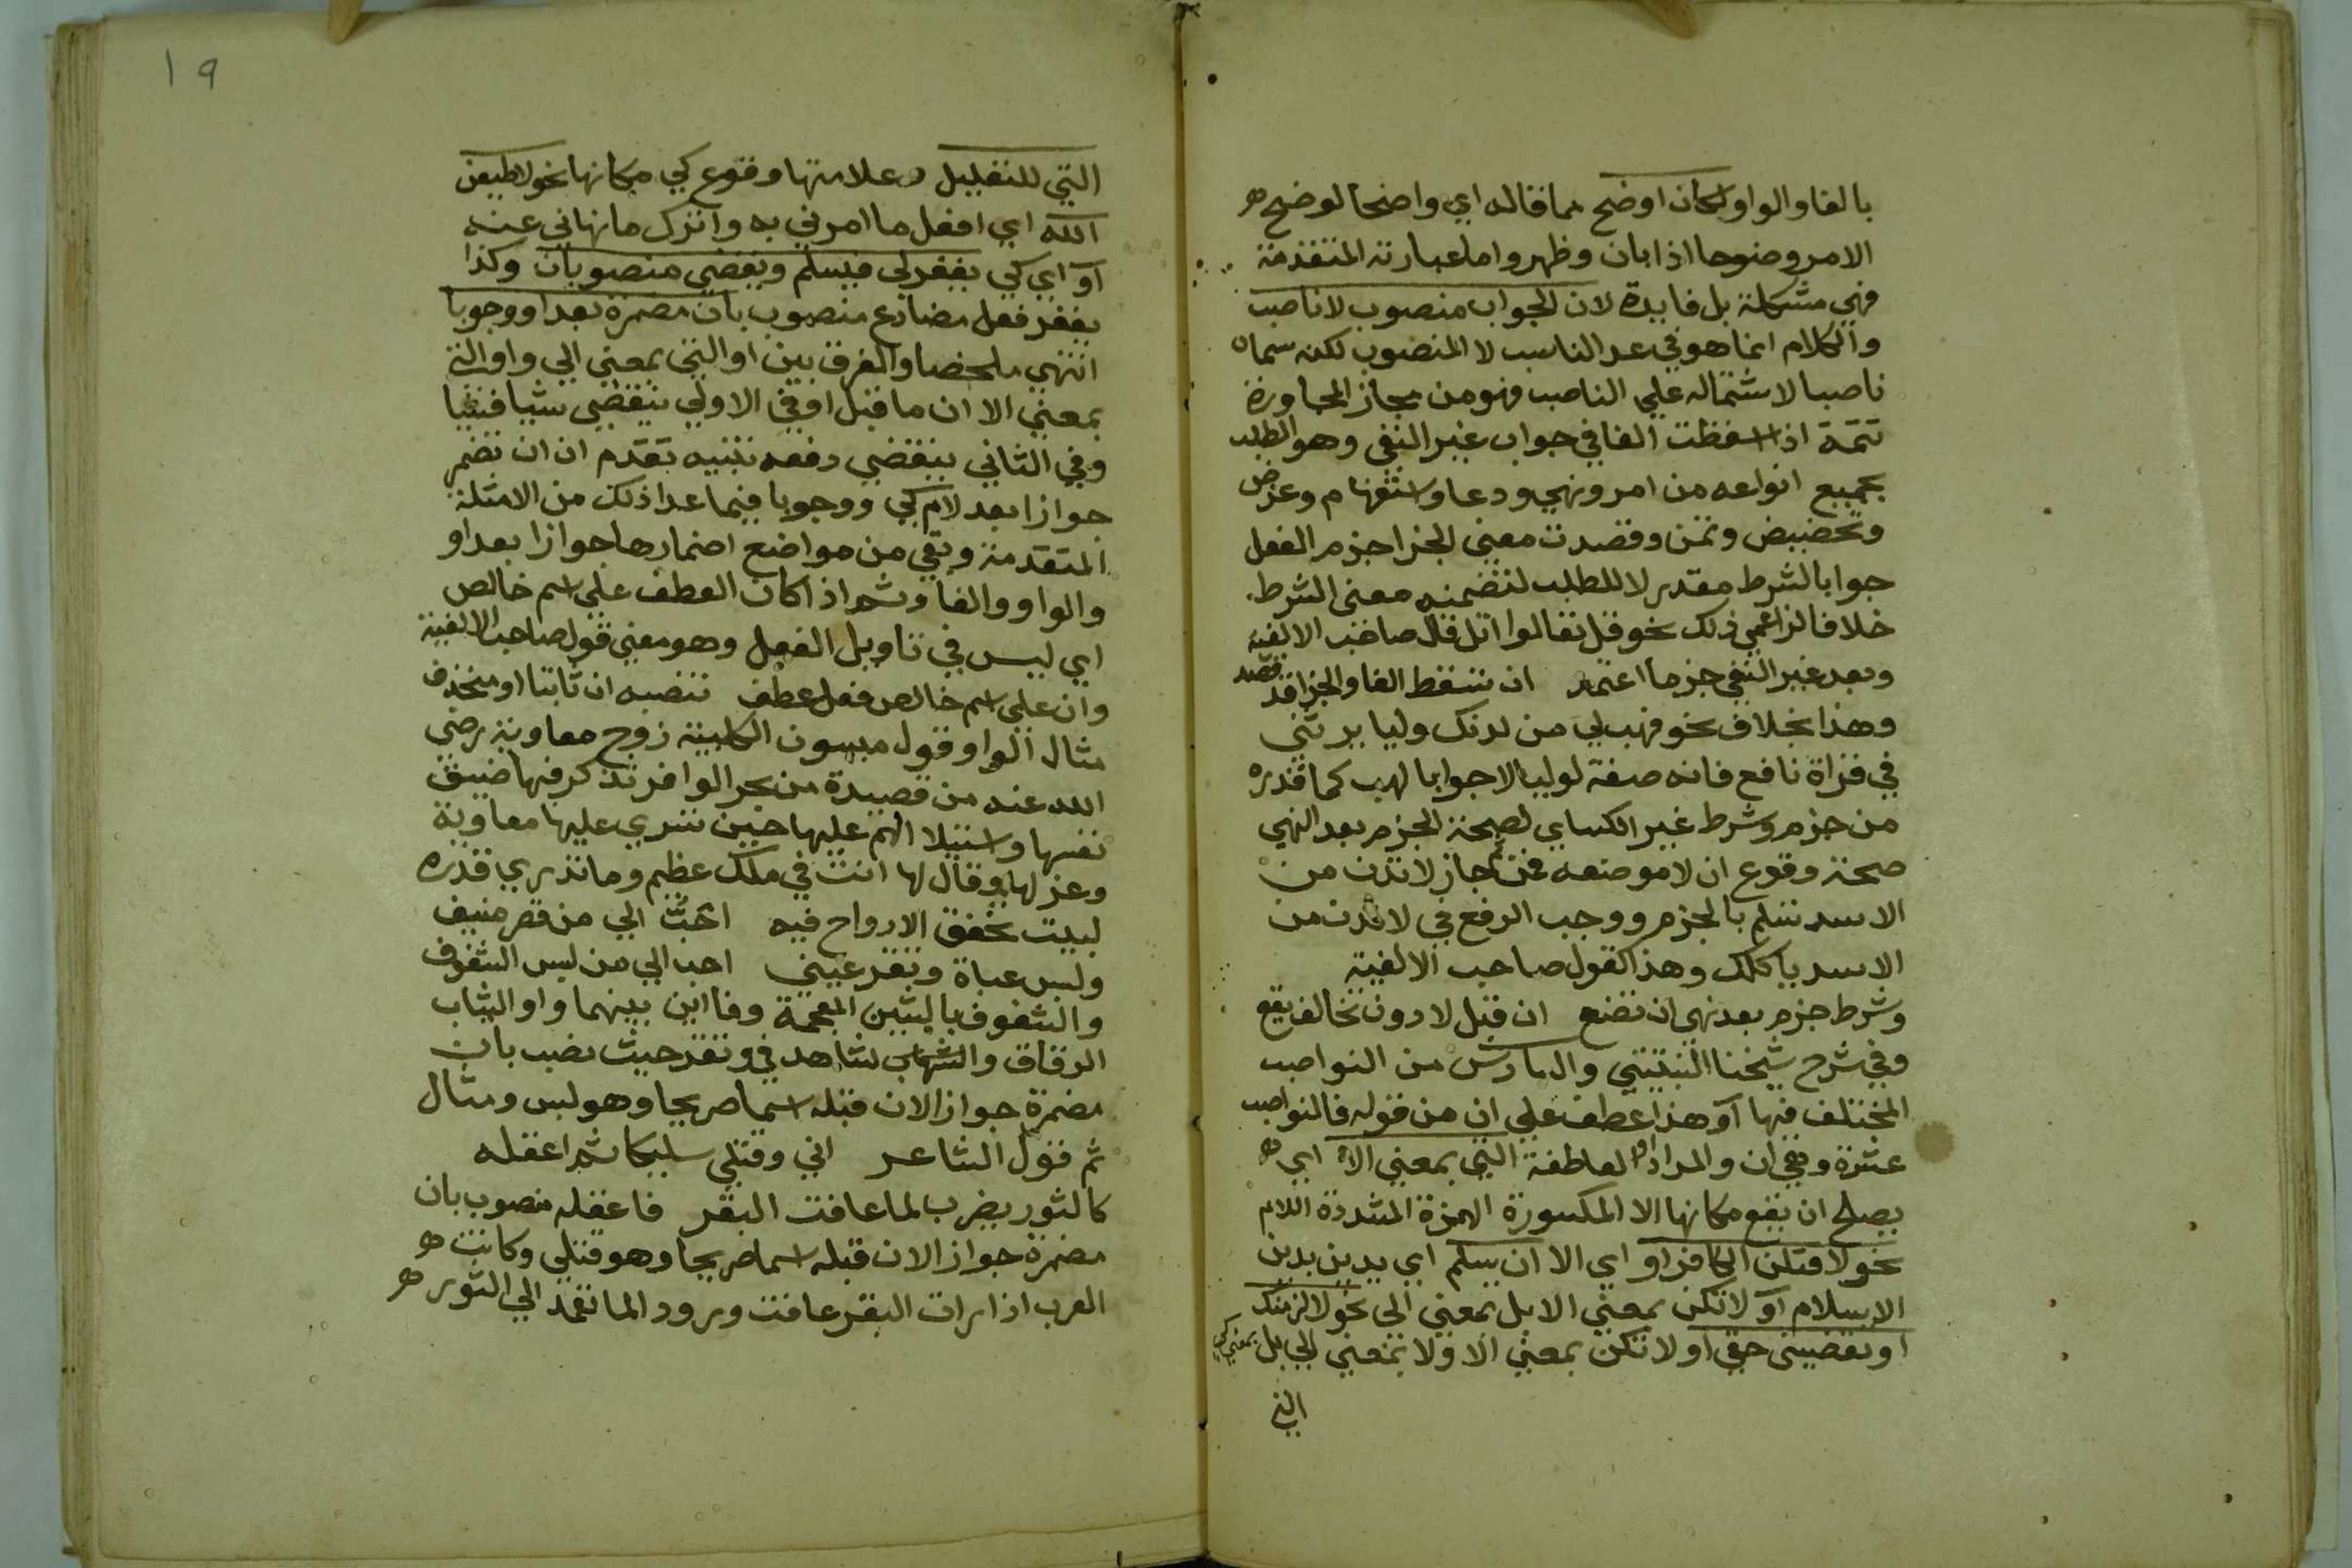 بالفا والواو لكان اوضح مما قاله اي واضحا لوضح
الامر وضوحا اذا بان وظهر واما عبارته المتقدمة
فهي مشكلة بل فايدة لان الجواب منصوب لا ناصب
والكلام انما هو في عد الناصب لا المنصوب لكنه سماه
ناصبا لاشتماله علي الناصب فهو من مجاز المجاورة
تتمة اذا سقطت الفا في جواب غير النفي وهو الطلب
بجميع انواعه من امر ونهي ودعا واستفهام وعرض
وتحضيض وتمن وقصدت معني الجزا جزم الفعل
جوابا لشرط مقدر لا للطلب لتضمنه معني الشرط
خلافا لزاعمي ذلك نحو قل تعالوا اتل قال صاحب الالفية
وبعد غير النفي جزما اعتمد ان تسقط الفا والجزا قد قصد
وهذا بخلاف نحو فهب لي من لدنك وليا يرثني
في قراة نافع فانه صفة لوليا لا جوابا لهب كما قدره
من جزم وشرط غير الكساي لصحة الجزم بعد النهي
صحة وقوع ان لا موضعه فمن ثم جاز لا تدن من
الاسد تسلم بالجزم ووجب الرفع في لا تدن من
الاسد ياكلك وهذا كقول صاحب الالفية
وشرط جزم بعد نهي ان تضع ان قبل لا دون تخالف يقع
وفي شرح شيخنا النبتيتي والسادس من النواصب
المختلف فيها او هذا عطف علي ان من قوله فالنواصب
عشرة وهي ان والمراد او العاطفة التي بمعني الا اي
يصلح ان يقع مكانها الا المكسورة الهمزة المشددة اللام
نحو لاقتلن الكافر او اي الا ان يسلم اي يدين بدين
الاسلام او لا تكن بمعني الا بل بمعني الي نحو لالزمنك
او تقضيني حقي او لا تكن بمعني الا ولا بمعني الي بل بمعني كي
التي
١٩
التي للتعليل وعلامتها وقوع كي مكانها نحو لاطيعن
الله اي افعل ما امرني به واترك ما نهاني عنه
او اي كي يغفر لي فيسلم ويقضي منصوبان وكذا
يغفر فعل مضارع منصوب بان مضمرة بعد او وجوبا
انتهي ملخصا والفرق بين او التي بمعني الي واو التي
بمعني الا ان ما قبل او في الاولي ينقضي شيا فشيا
وفي الثاني ينقضي دفعه تنبيه تقدم ان ان تضمر
جوازا بعد لام كي ووجوبا فيما عدا ذلك من الامثلة
المتقدمة وبقي من مواضع اضمارها جوازا بعد او
والواو والفا وثم اذا كان العطف علي اسم خالص
اي ليس في تاويل الفعل وهو معني قول صاحب الالفية
وان علي اسم خالص فعل عطف تنصبه ان ثابتا او منحذف
مثال الواو قول ميسون الكلبية زوج معاوية رضي
الله عنه من قصيدة من بحر الوافر تذكر فيها ضيق
نفسها واستيلا الهم عليها حين تسري عليها معاوية
وعزلها وقال لها انت في ملك عظيم وما تدري قدره
لبيت تخفق الارواح فيه احب الي من قصر منيف
ولبس عباة وتقر عيني احب الي من لبس الشفوف
والشفوف بالشين المعجمة وفااين بينهما واو الثياب
الرقاق والشاهد في وتقر حيث نصب بان
مضمرة جوازا لان قبله اسما صريحا وهو لبس ومثال
ثم قول الشاعر اني وقتلي سليكا ثم اعقله
كالثور يضرب لما عافت البقر فاعقله منصوب بان
مضمرة جوازا لان قبله اسما صريحا وهو قتلي وكانت
العرب اذا رات البقر عافت ورود الما تعمد الي الثور